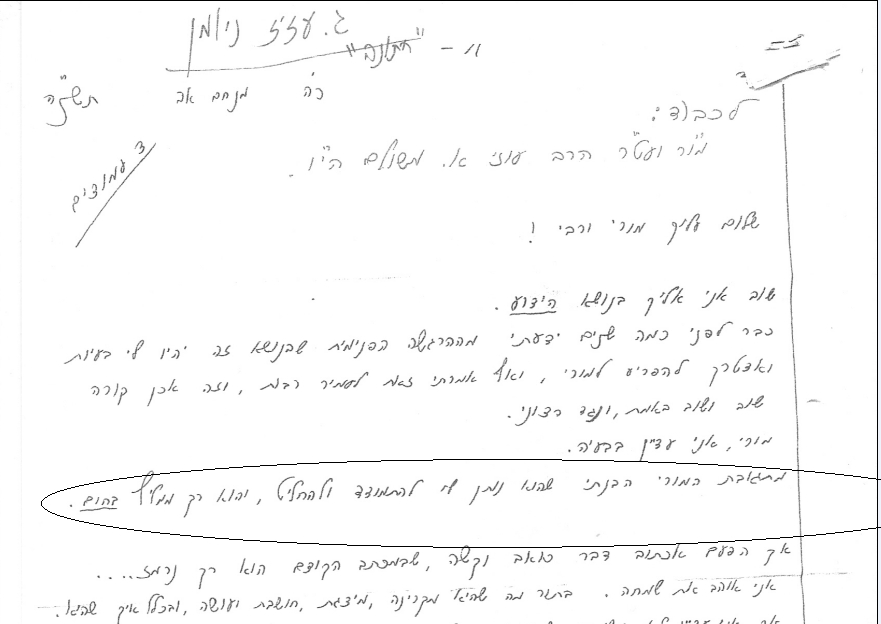 ג. עזיז ניומן
וו - "חתונה"
כ"ה מנחם אב תשנ"ה
3 עמודים
לכבוד:
מו"ר ועט"ר הרב עוזי א. משולם הי"ו.
שלום עליך מורי ורבי !
שוב אני אליך בנושא הידוע.
כבר לפני כמה שנים ידעתי מההרגשה הפנימית שבנושא זה יהיו לי בעיות
ואצטרך להפריע למורי, ואף אמרתי זאת לעמיר רבות, וזה אכן קורה
שוב ושוב באמת, ונגד רצוני.
מורי, אני עדיין בבעיה.
מתגובת המורי הבנתי שהוא נותן לי להתמודד ולהחליט, והוא רק ממליץ בהום.
אך הפעם אכתוב דבר כואב וקשה, שבמכתב הקודם הוא רק נרמז....
אני אוהב את שמחה. בתור מה שהיא מקרינה, מיצגת, חושבת ועושה, ובכלל איך שהיא.